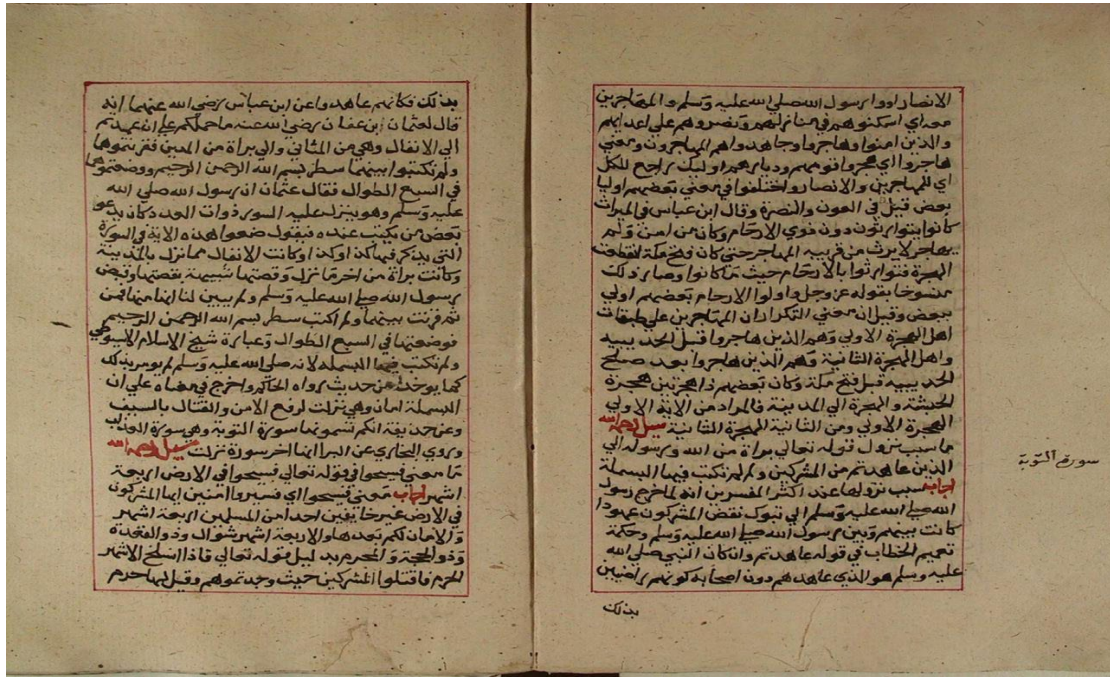 الانصار اووا رسول الله صلى الله عليه وسلم والمهاجرين
معه اي اسكنوهم في منازلهم ونصروهم علي اعدايهم
والذين امنوا وهاجروا وجاهدوا هم المهاجرون ومعني
هاجروا اي هجروا قومهم وديارهم اوليك راجع للكل
اي للمهاجرين والانصار واختلفوا في معني بعضهم اوليا
بعض قيل في العون والنصرة وقال ابن عباس في الميراث
كانوا يتوارثون دون ذوي الارحام وكان من امن ولم
يهاجر لا يرث من قريبه المهاجر حتي كان فتح مكة انقطعت
الهجرة فتوارثوا بالارحام حيث ما كانوا وصار ذلك
منسوخا بقوله عز وجل واولوا الارحام بعضهم اولي
ببعض وقيل ان معني التكرار ان المهاجرين علي طبقات
اهل الهجرة الاولي وهم الذين هاجروا قبل الحديبيه
واهل الهجرة الثانية وهم الذين هاجروا بعد صلح
الحديبيه قبل فتح مكة وكان بعضهم ذا هجرتين هجرة
الحبشة والهجرة الي المدينة فالمراد من الاية الاولي
الهجرة الاولي ومن الثانية الهجرة الثانية سيل رحمه الله
ما سبب نزول قوله تعالي براة من الله ورسوله الي
الذين عاهدتم من المشركين ولم لم تكتب فيها البسملة
اجاب سبب نزولها عند اكثر المفسرين انه لما خرج رسول
الله صلي الله عليه وسلم الي تبوك نقض المشركون عهودا
كانت بينهم وبين رسول الله صلي الله عليه وسلم وحكمة
تعميم الخطاب في قوله عاهدتم وان كان النبي صلي الله
عليه وسلم هو الذي عاهدهم دون اصحابه كونهم راضيين
بذلك
سورة التوبة
بذلك فكانهم عاهدوا عن ابن عباس رضي الله عنهما انه
قال لعثمان ابن عفان رضي الله عنه ما حملكم علي ان عمدتم
الي الانفال وهي من المثاني والي براة من المين فقرنتموها
ولم تكتبوا بينهما سطر بسم الله الرحمن الرحيم ووضعتموها
في السبع الطوال فقال عثمان ان رسول الله صلي الله
عليه وسلم وهو ينزل عليه السور ذوات العدد كان يدعو
بعض من يكتب عنده فيقول ضعوا هذه الاية في السورة
التي يذكر فيها كذا وكذا وكانت الانفال مما نزل بالمدينة
وكانت براة من اخر ما نزل وقصتها شبيهة بقصتها وقبض
رسول الله صلي الله عليه وسلم ولم يبين لنا انها منها فمن
ثم قرنت بينهما ولم اكتب سطر بسم الله الرحمن الرحيم
فوضعتها في السبع الطوال وعبارة شيخ الاسلام الاسيوطي
ولم تكتب فيها البسمله لانه صلي الله عليه وسلم لم يومر بذلك
كما يوخذ من حديث رواه الحاكم واخرج في معناه علي ان
البسملة امان وهي نزلت لرفع الامن والقتال بالسيف
وعن حذيفة انكم تسمونها سورة التوبة وهي سورة العذاب
وروي البخاري عن البرا انها اخر سورة نزلت سيل رحمه الله
ما معني فسيحوا في قوله تعالي فسيحوا في الارض اربعة
اشهر اجاب معني فسيحوا اي فسيروا امنين ايها المشركون
في الارض غير خايفين احدا من المسلمين اربعة اشهر
والامان لكم بعدها والاربعة اشهر شوال وذو القعدة
وذو الحجة والمحرم بدليل قوله تعالي فاذا انسلخ الاشهر
الحرم فاقتلوا المشركين حيث وجدتموهم وقيل لها حرم